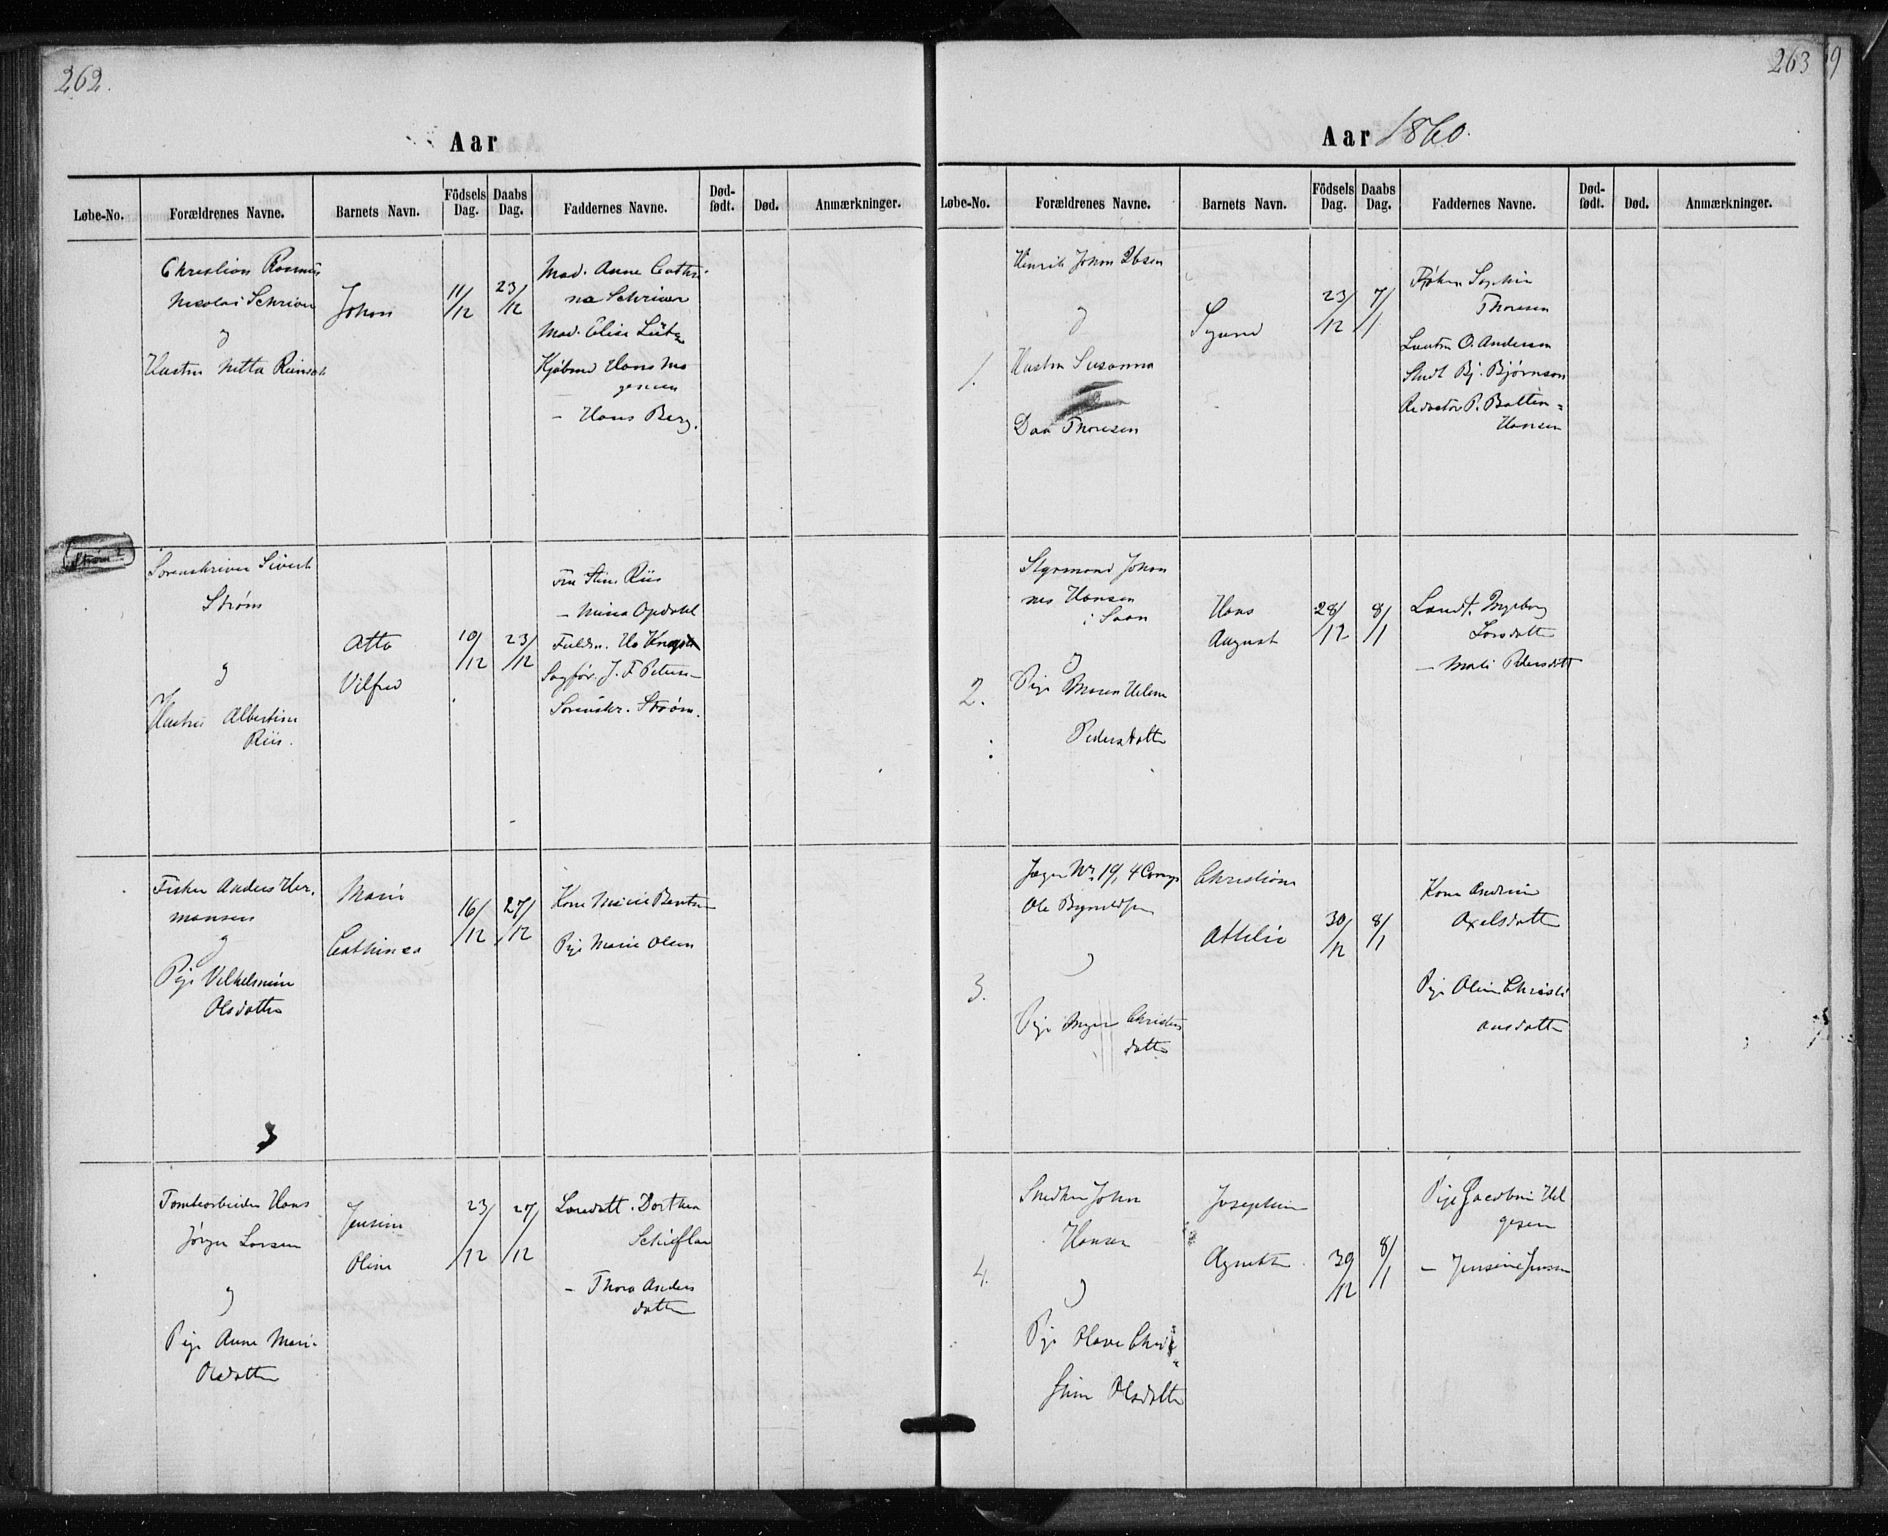 262.
Aar
Løbe-No.
Forældrenes Navne.
Barnets Navn.
Födsels Dag.
Daabs Dag.
Faddernes Navne.
Dødfødt.
Død.
Anmærkninger.
Christian Rasmus
Nicolai Schriver
g
Hustru Netta
Johan
11/12
23/12
Mad. Anne Cathri
na Schriver
Mad. Elise
Kjøbmd Hans Mo
gensen
— Hans Berg.
Strøm
Sorenskriver Sivert
Strøm
g
Hustru Albertine
Riis.
Otto
Vilfred
10/12
23/12
Fru Stine Riis
— Mina Opdahl
Fuldm.
Sagfør. J. F. Peterse—
Sorenskr. Strøm.
Fisker Anders Her.
mansen
g
Pige Vilhelmine
Olsdatter
Marie
Cathinca
16/12
27/12
Kone Marie Berntsen
Pige Marie Olsen
Tomtearbeider Hans
Jörgen Larsen
g
Pige Anne Marie
Olsdatter
Jensine
Oline
23/12
27/12
Dorthea
— Thora Anders
datter
263
9
Aar 1860.
Løbe-No.
Forældrenes Navne.
Barnets Navn.
Födsels Dag.
Daabs Dag.
Faddernes Navne.
Dødfødt.
Død.
Anmærkninger.
1.
Henrik Johan Ibsen
g
Hustru Susanna
Daa Thoresen
Sigurd
23/12
7/1
Frøken Sophie
Thoresen
O. Andersen
Studt Bj. Bjørnson
Redaktör P. Botten=
Hansen
2.
Styrmand Johan
nes Hansen
i Saan
g
Pige Maren Helene
Pedersdatter
Hans
August
28/12
8/1
Ingeborg
Larsdatter
— Mali Pedersdatt
3.
Jæger No 19, 4 Comp
Ole
g
Pige Inger Christens
datter
Christiane
Athilie
30/12
8/1
Kone Andrine
Axelsdatter
Pige Oline Christi
ansdatter
4.
Snedker John
Hansen
g
Pige Olave Chri=
stine Olsdatter
Josephine
Agnethe
30/12
8/1
Pige Jacobine Hel
gesen
— Jensine Jensen